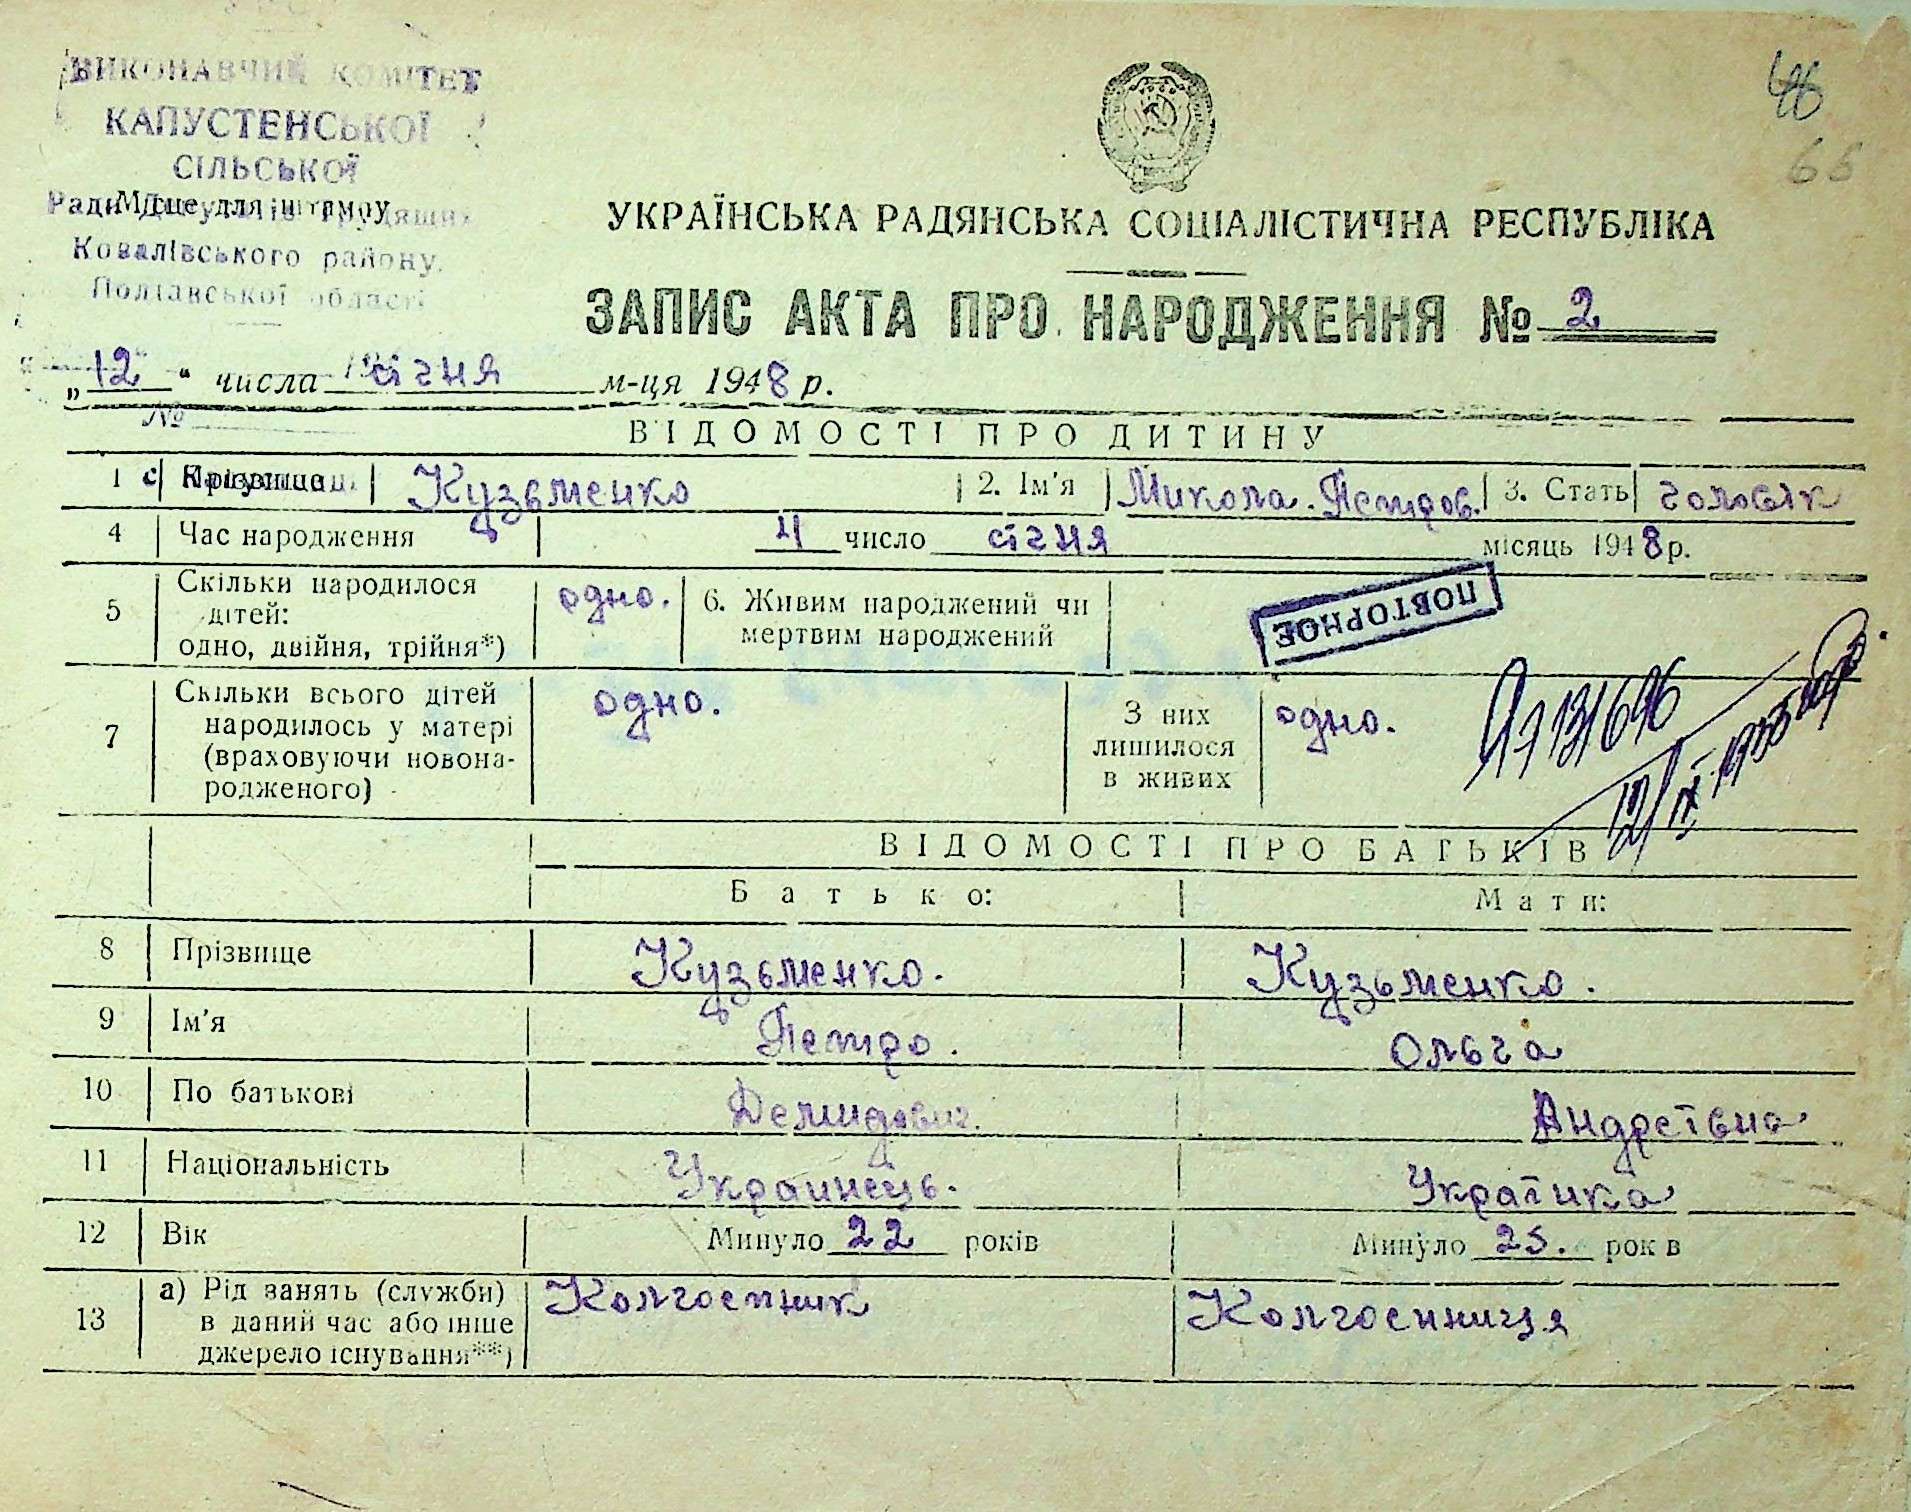 ВИКОНАВЧИЙ КОМІТЕТ
КАПУСТЕНСЬКОЇ
СІЛЬСЬКОЇ
Ради Депутатів трудящих
Місце для штампу
Ковалівського району,
Полтавської області
46
66
УКРАЇНСЬКА РАДЯНСЬКА СОЦІАЛІСТИЧНА РЕСПУБЛІКА
ЗАПИС АКТА ПРО НАРОДЖЕННЯ № 2
„12“ числа січня м-ця 1948 р.
№
ВІДОМОСТІ ПРО ДИТИНУ
1 Прізвище Кузьменко 2. Ім'я Микола. Петров. 3. Стать чоловік
4 Час народження 4 число січня місяць 1948 р.
5 Скільки народилося дітей: одно, двійня, трійня*) одно. 6. Живим народжений чи мертвим народжений
ПОВТОРНОЕ
7 Скільки всього дітей народилось у матері (враховуючи новонародженого) одно. З них лишилося в живих одно.
131696
12/IX 1955
ВІДОМОСТІ ПРО БАТЬКІВ
Батько: Мати:
8 Прізвище Кузьменко. Кузьменко.
9 Ім'я Петро. Ольга
10 По батькові Демидович. Андреївна
11 Національність Украинець. Украінка
12 Вік Минуло 22 років Минуло 25. років
13 а) Рід занять (служби) в даний час або інше джерело існування**) Колгоспник Колгоспниця